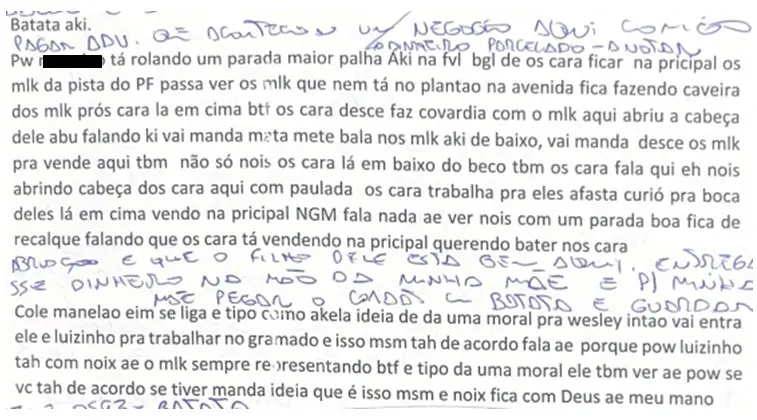 Batata aki.
UM NEGOCIO AQUI COMIGO
PAGAR ADV. QUE ACONTECEU
DINHEIRO PARCELADO - ANOTAR
Pw tá rolando um parada maior palha Aki na fvl bgl de os cara ficar na pricipal os
mlk da pista do PF passa ver os mlk que nem tá no plantao na avenida fica fazendo caveira
dos mlk prós cara la em cima btf os cara desce faz covardia com o mlk aqui abriu a cabeça
dele abu falando ki vai manda meta mete bala nos mlk aki de baixo, vai manda desce os mlk
pra vende aqui tbm não só nois os cara lá em baixo do beco tbm os cara fala qui eh nois
abrindo cabeça dos cara aqui com paulada os cara trabalha pra eles afasta curió pra boca
deles lá em cima vendo na pricipal NGM fala nada ae ver nois com um parada boa fica de
recalque falando que os cara tá vendendo na pricipal querendo bater nos cara
E QUE O FILHO DELE ESTA BEM AQUI. ENTREGA
SSE DINHEIRO NA MÃO DA MINHA MÃE E P/ MINHA
MÃE PEGAR O C/ BATATA E GUARDAR
Cole manelao eim se liga e tipo como akela ideia de da uma moral pra wesley intao vai entra
ele e luizinho pra trabalhar no gramado e isso msm tah de acordo fala ae porque pow luizinho
tah com noix ae o mlk sempre representando btf e tipo da uma moral ele tbm ver ae pow se
vc tah de acordo se tiver manda ideia que é isso msm e noix fica com Deus ae meu mano
BATATA